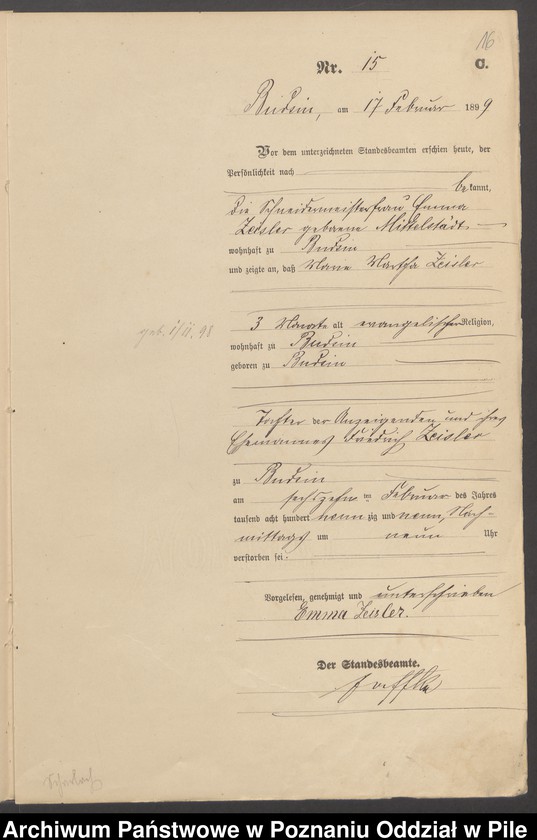 16
Nr. 15 C.
Budsin, am 17 Februar 1899
Vor dem unterzeichneten Standesbeamten erschien heute, der
Persönlichkeit nach
bekannt,
die Schneidermeisterfrau Emma
Zeisler geborne Mittelstädt
wohnhaft zu Budsin
und zeigte an, daß Martha Zeisler
3 Monate alt evangelischer Religion,
geb. 1/11. 98
wohnhaft zu Budsin
geboren zu Budsin
Tochter der Anzeigenden und ihres
Ehemannes Friedrich Zeisler
zu Budsin
am sechszehnten Februar des Jahres
tausend acht hundert neunzig und neun, Nach-
mittags um neun Uhr
verstorben sei.
Vorgelesen, genehmigt und unterschrieben
Emma Zeisler.
Der Standesbeamte.
Archiwum Państwowe w Poznaniu Oddział w Pile